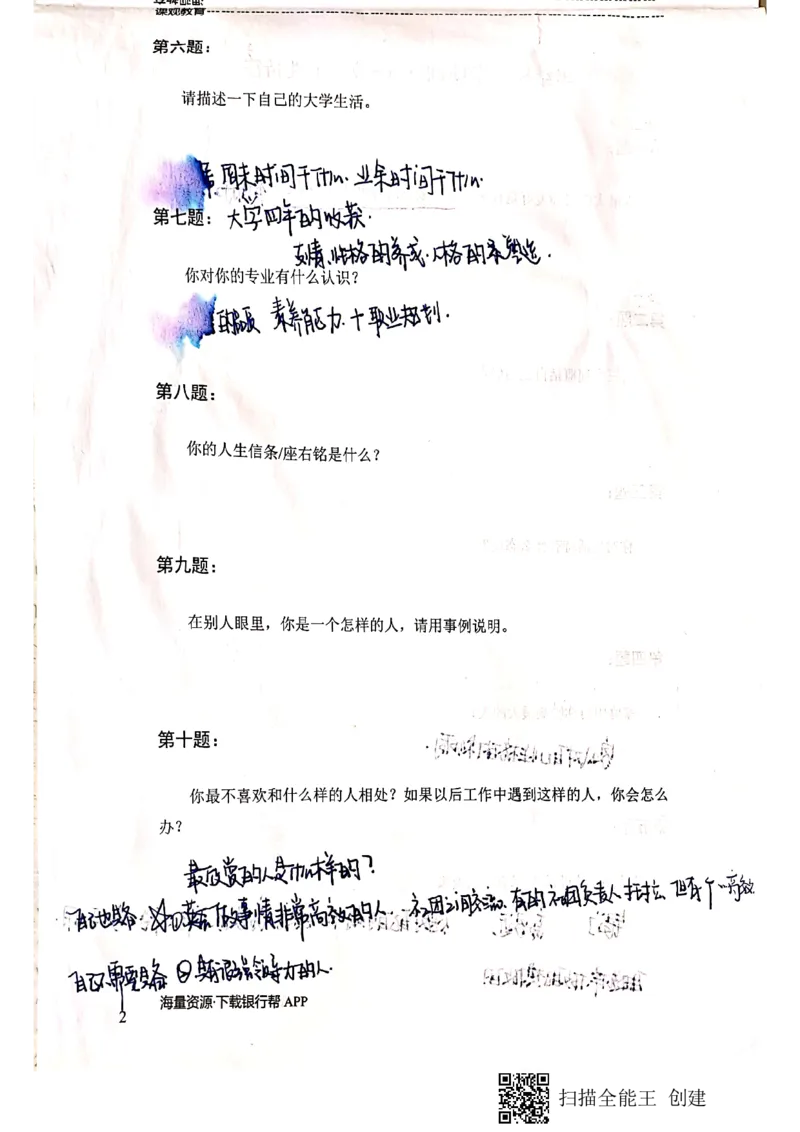 课观教育
第六题：
请描述一下自己的大学生活。
周末时间干什么. 业余时间干什么.
第七题：大学四年的收获.
友情、性格的养成.人格的塑造.
你对你的专业有什么认识？
素养能力.十职业规划.
第八题：
你的人生信条/座右铭是什么？
第九题：
在别人眼里，你是一个怎样的人，请用事例说明。
第十题：
你最不喜欢和什么样的人相处？如果以后工作中遇到这样的人，你会怎么
办？
最欣赏的人是什么样的？
自己也具备 做事情非常高效的人. 社团之间交流、有的社团负责人拖拉. 但有个一高效
自己不需要具备 ② 领导力的人.
海量资源·下载银行帮 APP
2
扫描全能王 创建